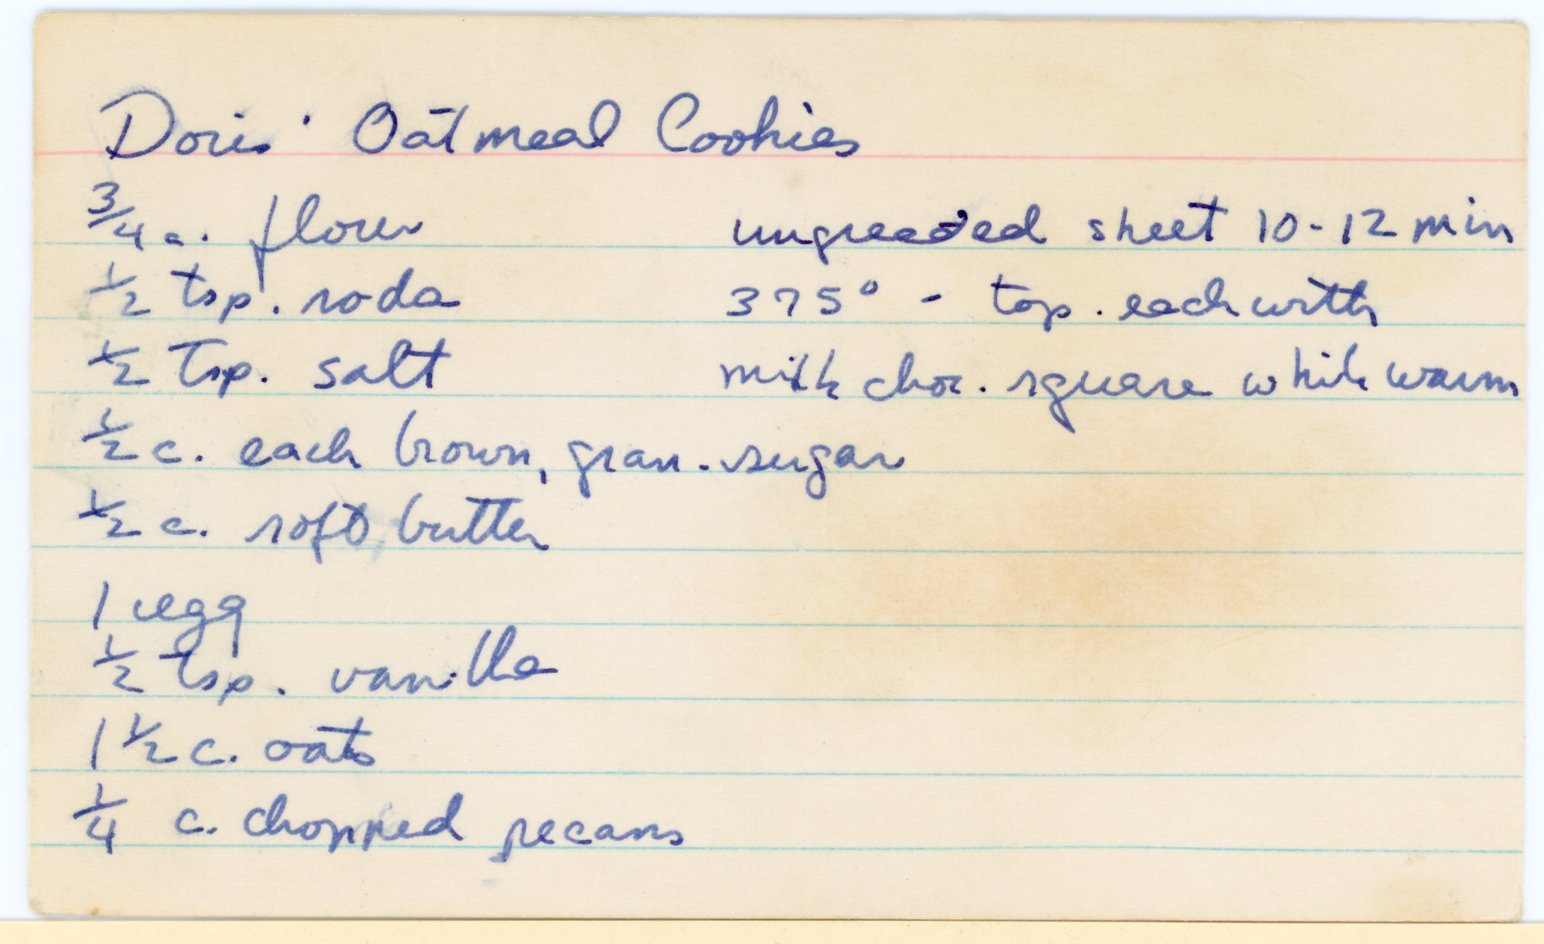 Doris' Oatmeal Cookies
3/4 c. flour
1/2 tsp. soda
1/2 Tsp. salt
1/2 c. each brown, gran. sugar
1/2 c. soft butter
1 egg
1/2 tsp. vanilla
1 1/2 c. oats
1/4 c. chopped pecans
ungreased sheet 10-12 min
375° - top. each with
milk choc. square while warm